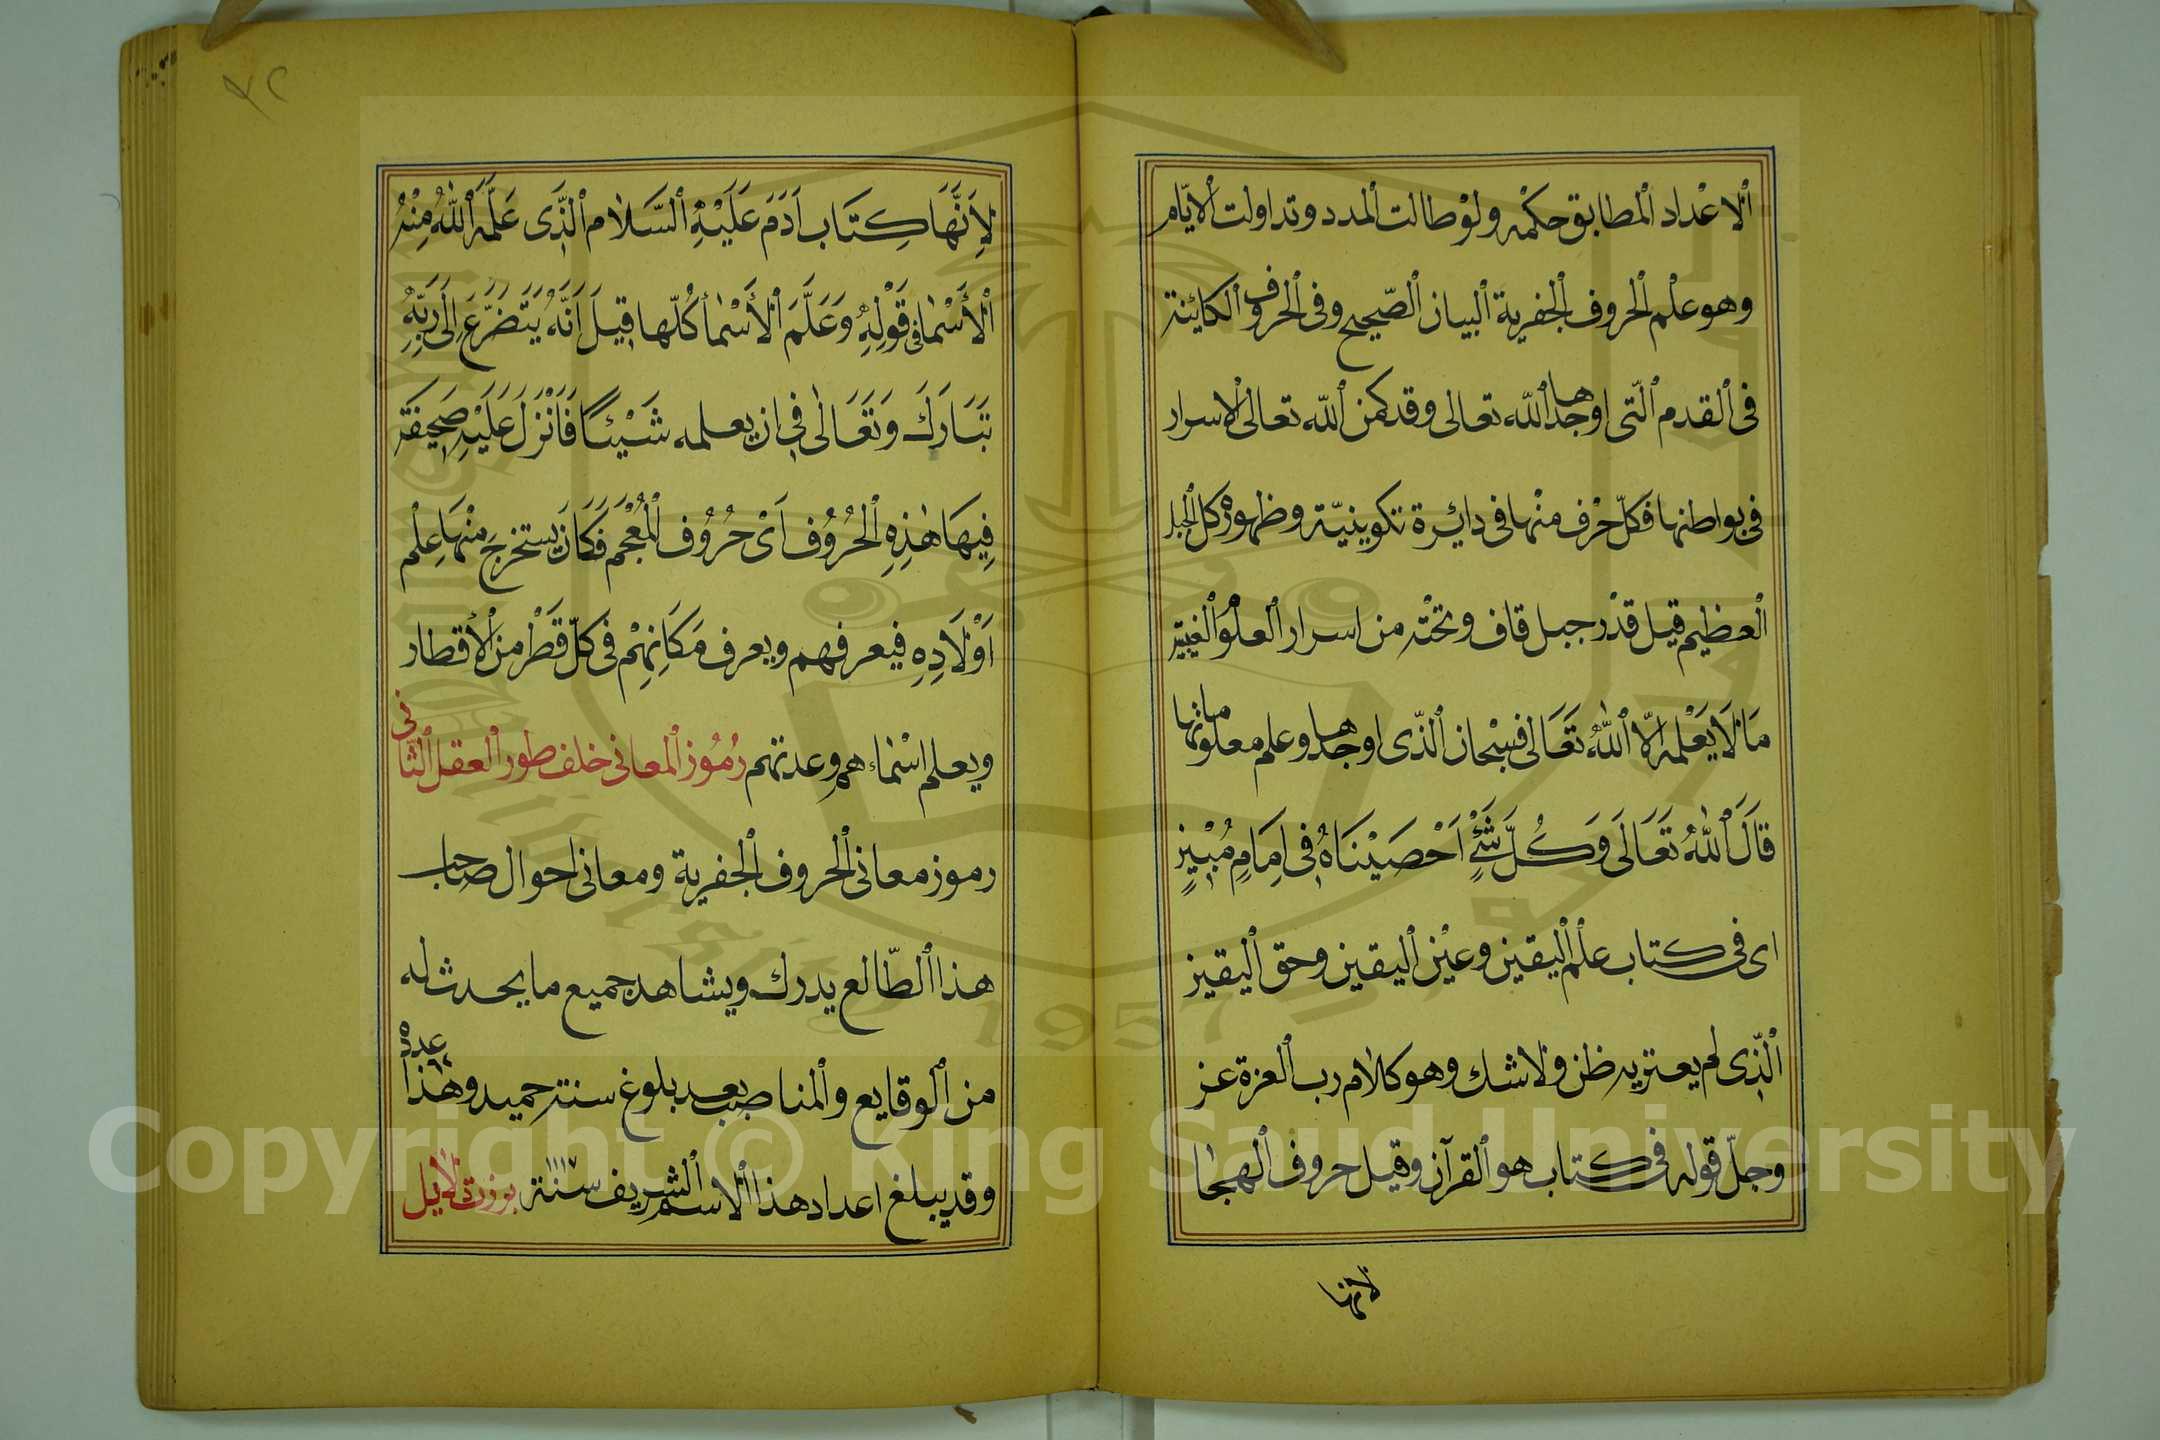 ٱلاعْداد ٱلمطابق حكمْه ولوْ طالت ٱلمدد وتداولت ٱلايّام
وهو علْم ٱلحروف ٱلجفرية ٱلبيان ٱلصّحيح وفى ٱلحروف ٱلكائنة
فى ٱلقدم ٱلّتى اوجدها ٱللّه تعالى وقد كمن ٱللّه تعالى ٱلاسرار
فى بواطنها فكلّ حرْف منْها فى دائرة تكوينيّة وظهوره كل الجبل
ٱلعظيم قيل قدْر جبل قاف وتحْته من اسرار ٱلعلوْ ٱلغيبية
مَا لَا يَعْلمه اِلّا ٱللّٰهُ تَعَالى فسبْحان ٱلّذى اوجدها وعلم معلوماتها
قَالَ ٱللّٰهُ تَعَالَى وَكُلَّ شَىْءٍ اَحْصَيْنَاهُ فِى اِمَامٍ مُبٖيْنٍ
اى فى كتاب علْم ٱليقين وعيْن ٱليقين وحق ٱليقين
ٱلّذى لم يعتريه ظن ولا شك وهو كلام رب ٱلعزة عز
وجلّ قوله فى كتاب هو ٱلقرآن وقيل حروف ٱلهجا
لانها
٧٢
لِاَنَّهَا كِتَاب اٰدَمَ عَلَيْهِ ٱلسَّلَام ٱلَّذٖى عَلَّمَهُ ٱللّٰهُ مِنْهُ
ٱلْأَسْمٰا فى قَوْلِهِ وَعَلَّمَ ٱلْأَسْمٰأ كُلّها قِيلَ اَنَّهُ يَتَضَرَّعَ اِلَى رَبِّهِ
تَبَارَكَ وَتَعَالٰى فى ان يعلمه شَيْئًا فَاَنْزَلَ عَلَيْهِ صَحِيفَة
فِيهَا هٰذِهِ ٱلْحُرُوُف اَىْ حُرُوُف ٱلْمُعْجَم فَكَانَ يستخرج مِنْهَا عِلْم
اَوْلَادِهِ فيعرفهم ويعرف مَكَانِهِمْ فى كلّ قَطْر من ٱلْأقطار
ويعلم اسْمٰاءهم وعدتهم رُمُوُز ٱلمعانى خلف طور ٱلعقل ٱلثّانى
رموز معانى ٱلحروف ٱلجفرية ومعانى احوال صاحب
هذا ٱلطّالع يدرك ويشاهد جميع ما يحدث له
من ٱلوقايع وٱلمناصب بعد بلوغ سنة حميد وهذا عدده
وقد يبلغ اعداد هذا ٱلاسم ٱلشريف سنة